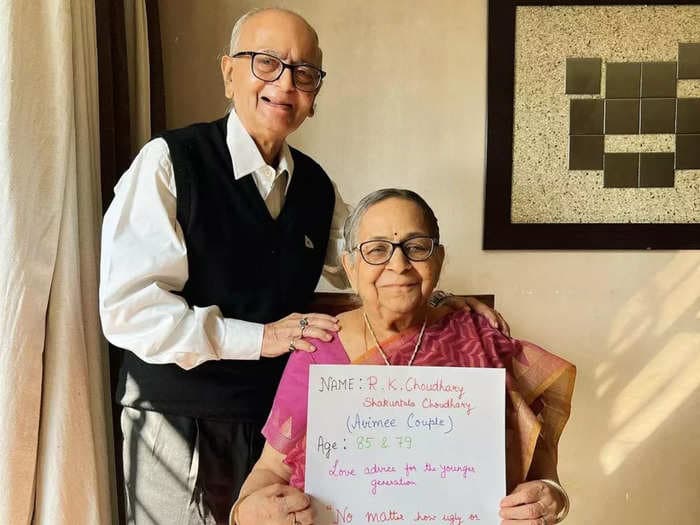 NAME: R. K. Choudhary
Shakuntala Choudhary
(Avimee Couple)
Age: 85 & 79
Love advice for the younger
generation
"No matter how ugly or